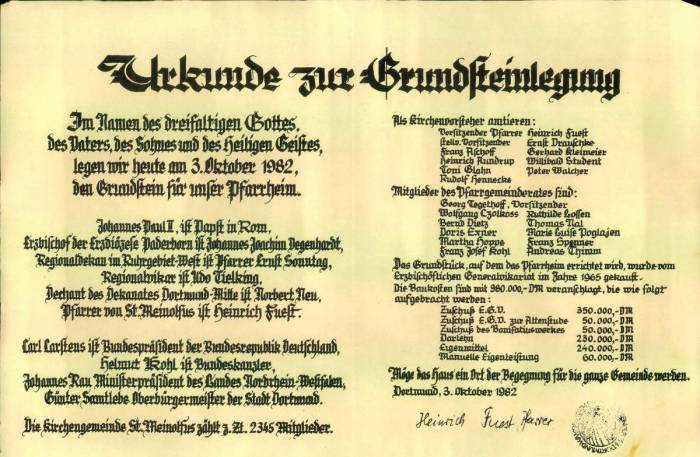 Urkunde zur Grundsteinlegung
Im Namen des dreifaltigen Gottes,
des Vaters, des Sohnes und des Heiligen Geistes,
legen wir heute am 3. Oktober 1982,
den Grundstein für unser Pfarrheim.
Johannes Paul II, ist Papst in Rom,
Erzbischof der Erzdiözese Paderborn ist Johannes Joachim Degenhardt,
Regionaldekan im Ruhrgebiet-West ist Pfarrer Ernst Sonntag,
Regionalvikar ist Udo Tielking,
Dechant des Dekanates Dortmund-Mitte ist Norbert Neu,
Pfarrer von St. Meinolfus ist Heinrich Fuest.
Carl Carstens ist Bundespräsident der Bundesrepublik Deutschland,
Helmut Kohl ist Bundeskanzler,
Johannes Rau Ministerpräsident des Landes Nordrhein-Westfalen,
Günter Samtlebe Oberbürgermeister der Stadt Dortmund.
Die Kirchengemeinde St. Meinolfus zählt z. Zt. 2345 Mitglieder.
Als Kirchenvorsteher amtieren:
Vorsitzender Pfarrer Heinrich Fuest
stellv. Vorsitzender Ernst Drauschke
Franz Aschoff Gerhard Kleimeier
Heinrich Rundrup Willibald Student
Toni Glahn Peter Walcher
Rudolf Hennecke
Mitglieder des Pfarrgemeinderates sind:
Georg Tegethoff, Vorsitzender
Wolfgang Czolkoss Ruthilde Lossen
Bernd Dietz Thomas Nal
Doris Exner Marie Luise Poglajen
Martha Hoppe Franz Spenner
Franz Josef Kohl Andreas Thimm
Das Grundstück, auf dem das Pfarrheim errichtet wird, wurde vom
Erzbischöflichen Generalvikariat im Jahre 1965 gekauft.
Die Baukosten sind mit 980.000,-DM veranschlagt, die wie folgt
aufgebracht werden:
Zuschuß E.G.V. 350.000,-DM
Zuschuß E.G.V. zur Altenstube 50.000,-DM
Zuschuß des Bonifatiuswerkes 50.000,-DM
Darlehn 230.000,-DM
Eigenmittel 240.000,-DM
Manuelle Eigenleistung 60.000,-DM
Möge das Haus ein Ort der Begegnung für die ganze Gemeinde werden.
Dortmund, 3. Oktober 1982
Heinrich Fuest Pfarrer